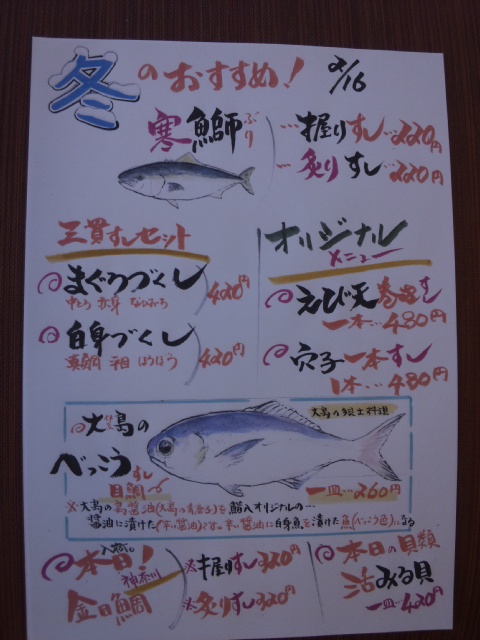 冬のおすすめ! 2/16
寒鰤 ぶり
…握りすし…220円
…炙りすし…220円
三貫すしセット
まぐろづくし 420円
中とろ 赤身 びんとろ
白身づくし 420円
真鯛 平目 ほうぼう
オリジナル
メニュー
えび天巻きすし
一本…480円
穴子一本すし
1本…480円
大島の
べっこうすし
目鯛
大島の郷土料理
一皿…260円
※大島の島醤油(大島の青唐子)を鮨入オリジナルの…
醤油に漬けた(辛い醤油)です。辛い醤油に白身魚を漬けた魚(べっこう色)になる
入荷。
本日!
神奈川
金目鯛
※握りすし320円
※炙りすし320円
本日の貝類
活みる貝
一皿…420円